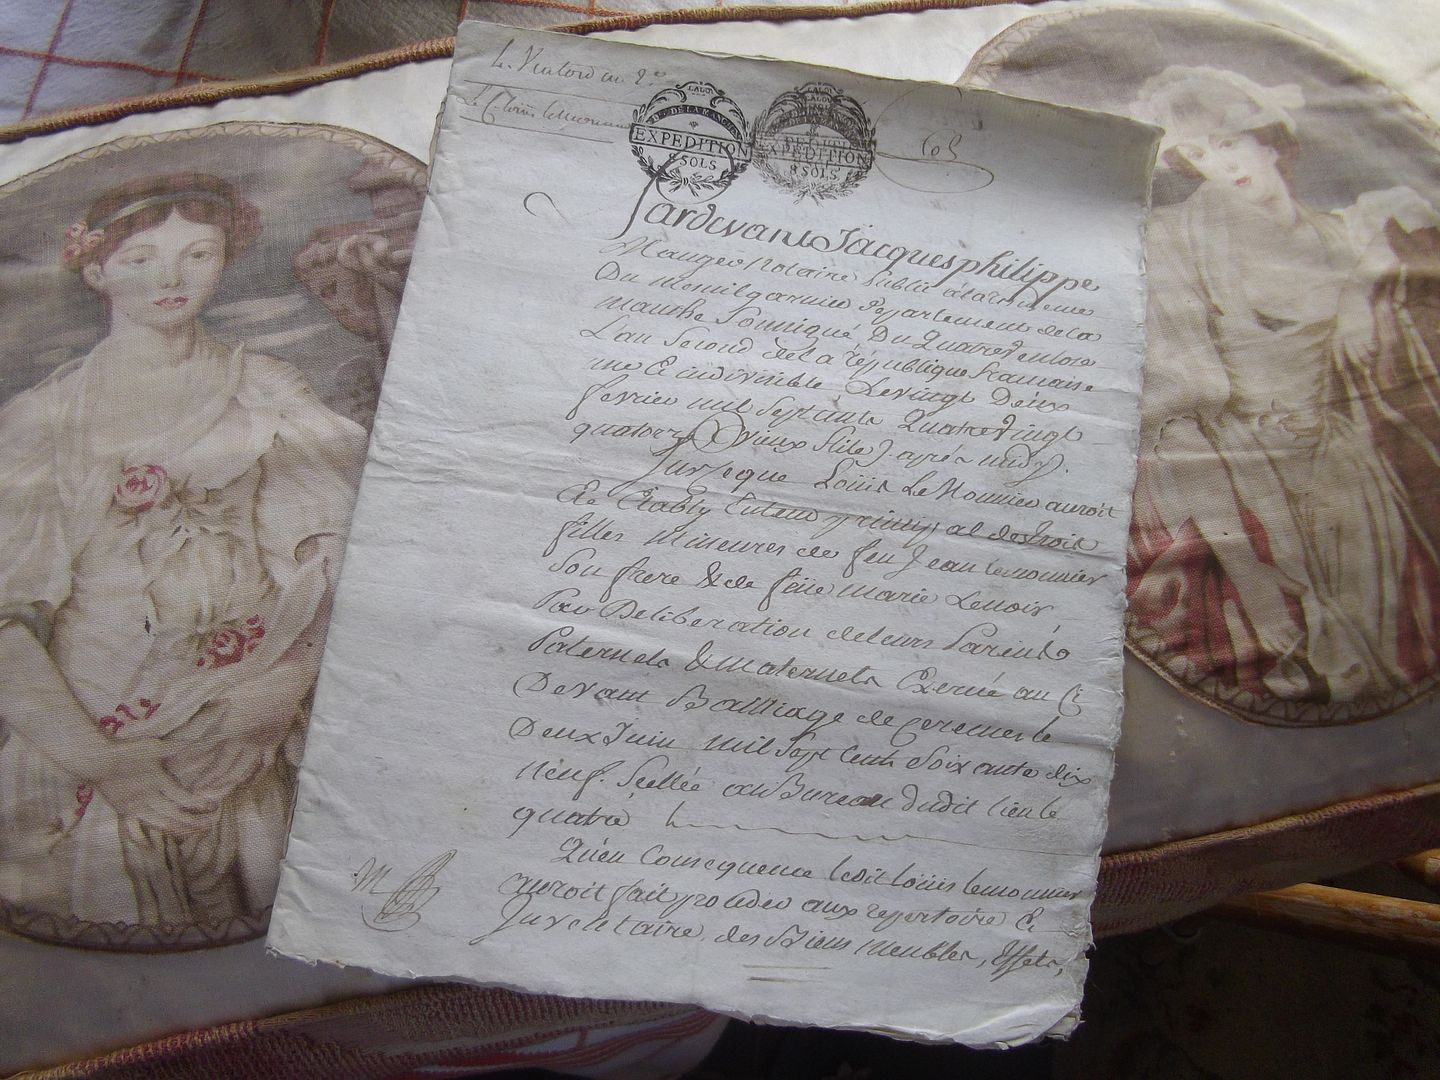 4. Ventose an 2e
LALOI
DE LA MANCHE
EXPEDITION
8 SOLS
LALOI
EXPEDITION
8 SOLS
Pardevant Jacques philippe
Mauger Notaire Public
Du Menilgarnier Departement de la
manche Soussigné Du Quatre Ventose
L'an Second de la république francaise
une & indivisible Le vingt Deux
fevrier mil Sept cents Quatre vingt
quatorze (vieux stile) après midy.
Sur ce que Louis Le Monnier auroit
Eté Etably Tuteur principal des trois
filles Mineures de feu Jean lemonnier
Son frere & de feüe marie Lenoir,
Par Deliberation de leurs Parents
Paternels & maternels Exercée au Ci
Devant Bailliage de cerences le
Deux Juin mil Sept Cents Soixante dix
neuf. Scellée au Bureau dudit lieu le
quatre
Qu'en Consequence ledit loüis lemonnier
auroit fait proceder aux repertoire &
Inventaire des Biens meubles, Effets,